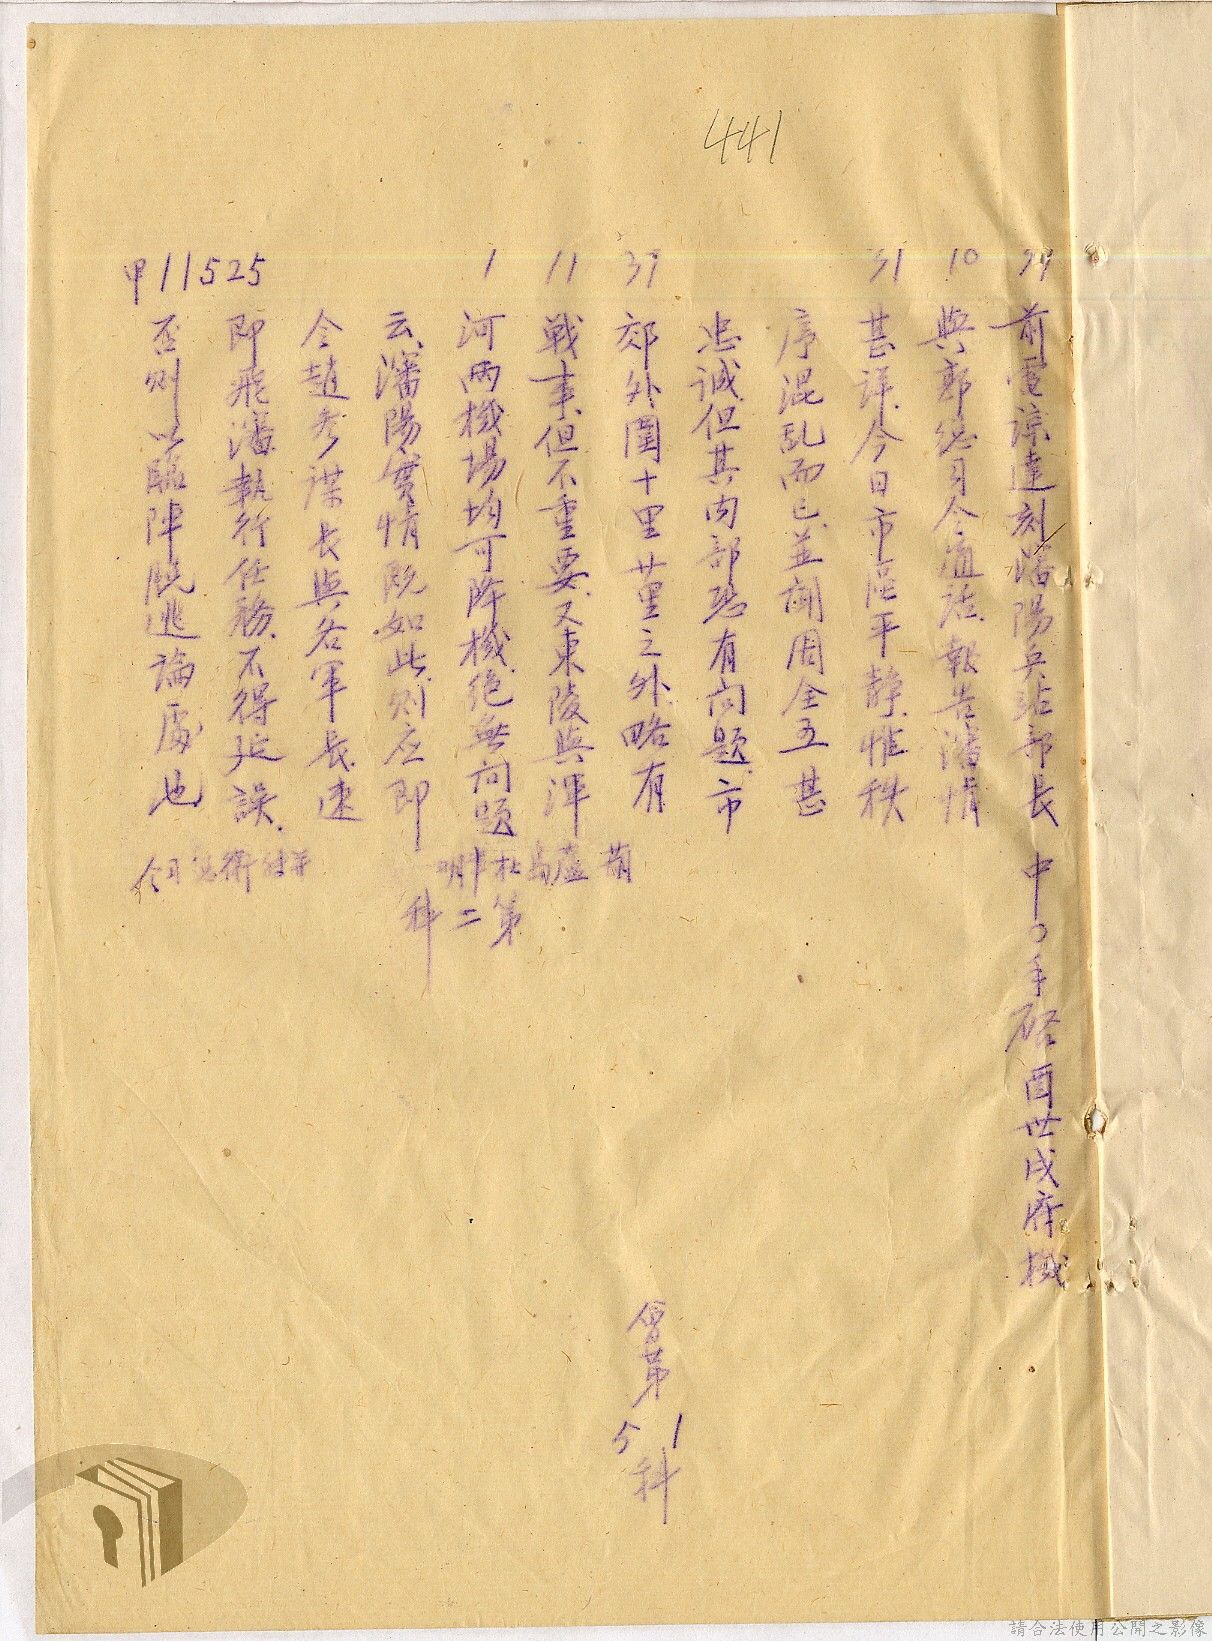 441
39 前電諒達刻瀋陽兵站部長 中〇手啓酉世戌府機
10 與鄭總司令通話報告瀋情
31 甚詳今日市區平靜惟秩
序混乱而已並聞周全五甚
忠誠但其內部恐有问題市
39 郊外圍十里廿里之外略有
11 戰事但不重要又東陵與渾
1 河兩機場均可降機絕無问題
云瀋陽實情既如此則应即
令趙参谋长與各軍长速
即飛瀋執行任務不得延誤
甲11525
否则以臨陣脫逃論處也
葫蘆島杜
明
第二科
令
會第
5 1
科
請合法使用公開之影像